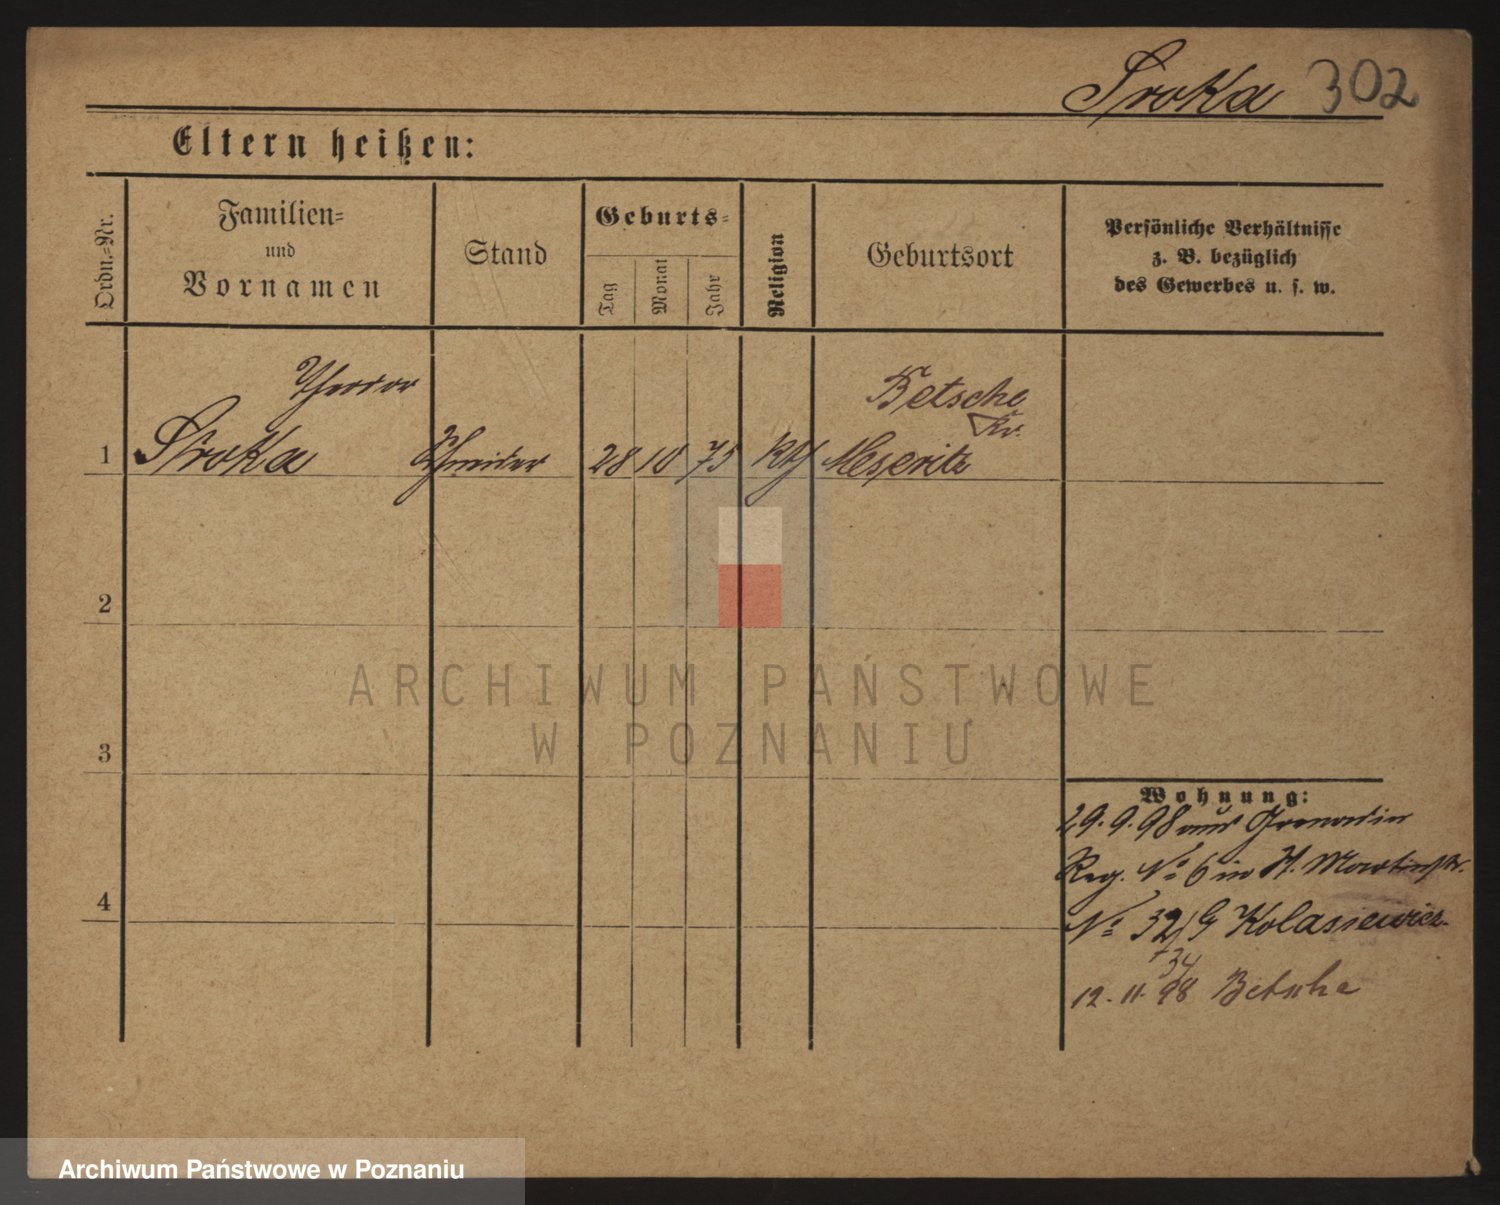 Sroka 302
Eltern heißen:
Ordn.-Nr.
Familien-
und
Vornamen
Stand
Geburts-
Tag
Monat
Jahr
Religion
Geburtsort
Persönliche Verhältnisse
z. B. bezüglich
des Gewerbes u. s. w.
Theodor
1 Sroka Schneider 28 10 75 kth Meseritz
Betsche
Kr.
2
3
4
Wohnung:
29.9.98 aus Grenadier
Reg. No 6 in St. Martinstr.
No 32/ G Kolasiewicz
34
12. 11. 98 Betsche
ARCHIWUM PAŃSTWOWE
W POZNANIU
Archiwum Państwowe w Poznaniu